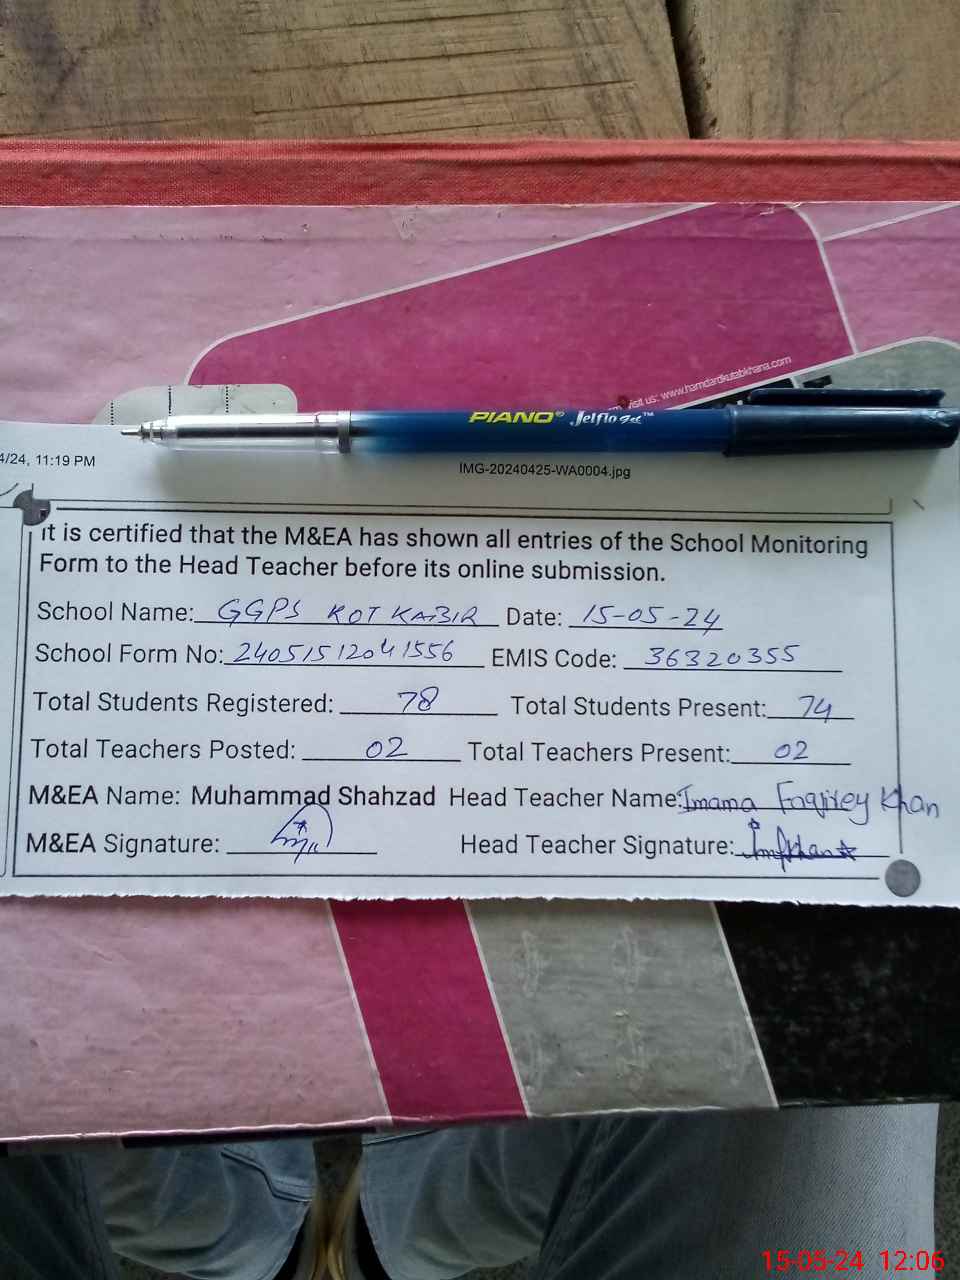 visit us: www.hamdardkutabkhana.com
PIANO® Jelflo gel™
4/24, 11:19 PM
IMG-20240425-WA0004.jpg
It is certified that the M&EA has shown all entries of the School Monitoring
Form to the Head Teacher before its online submission.
School Name: GGPS KOT KABIR Date: 15-05-24
School Form No: 24051512041556 EMIS Code: 36320355
Total Students Registered: 78 Total Students Present: 74
Total Teachers Posted: 02 Total Teachers Present: 02
M&EA Name: Muhammad Shahzad Head Teacher Name: Imama Khan
M&EA Signature: Head Teacher Signature:
15-05-24 12:06